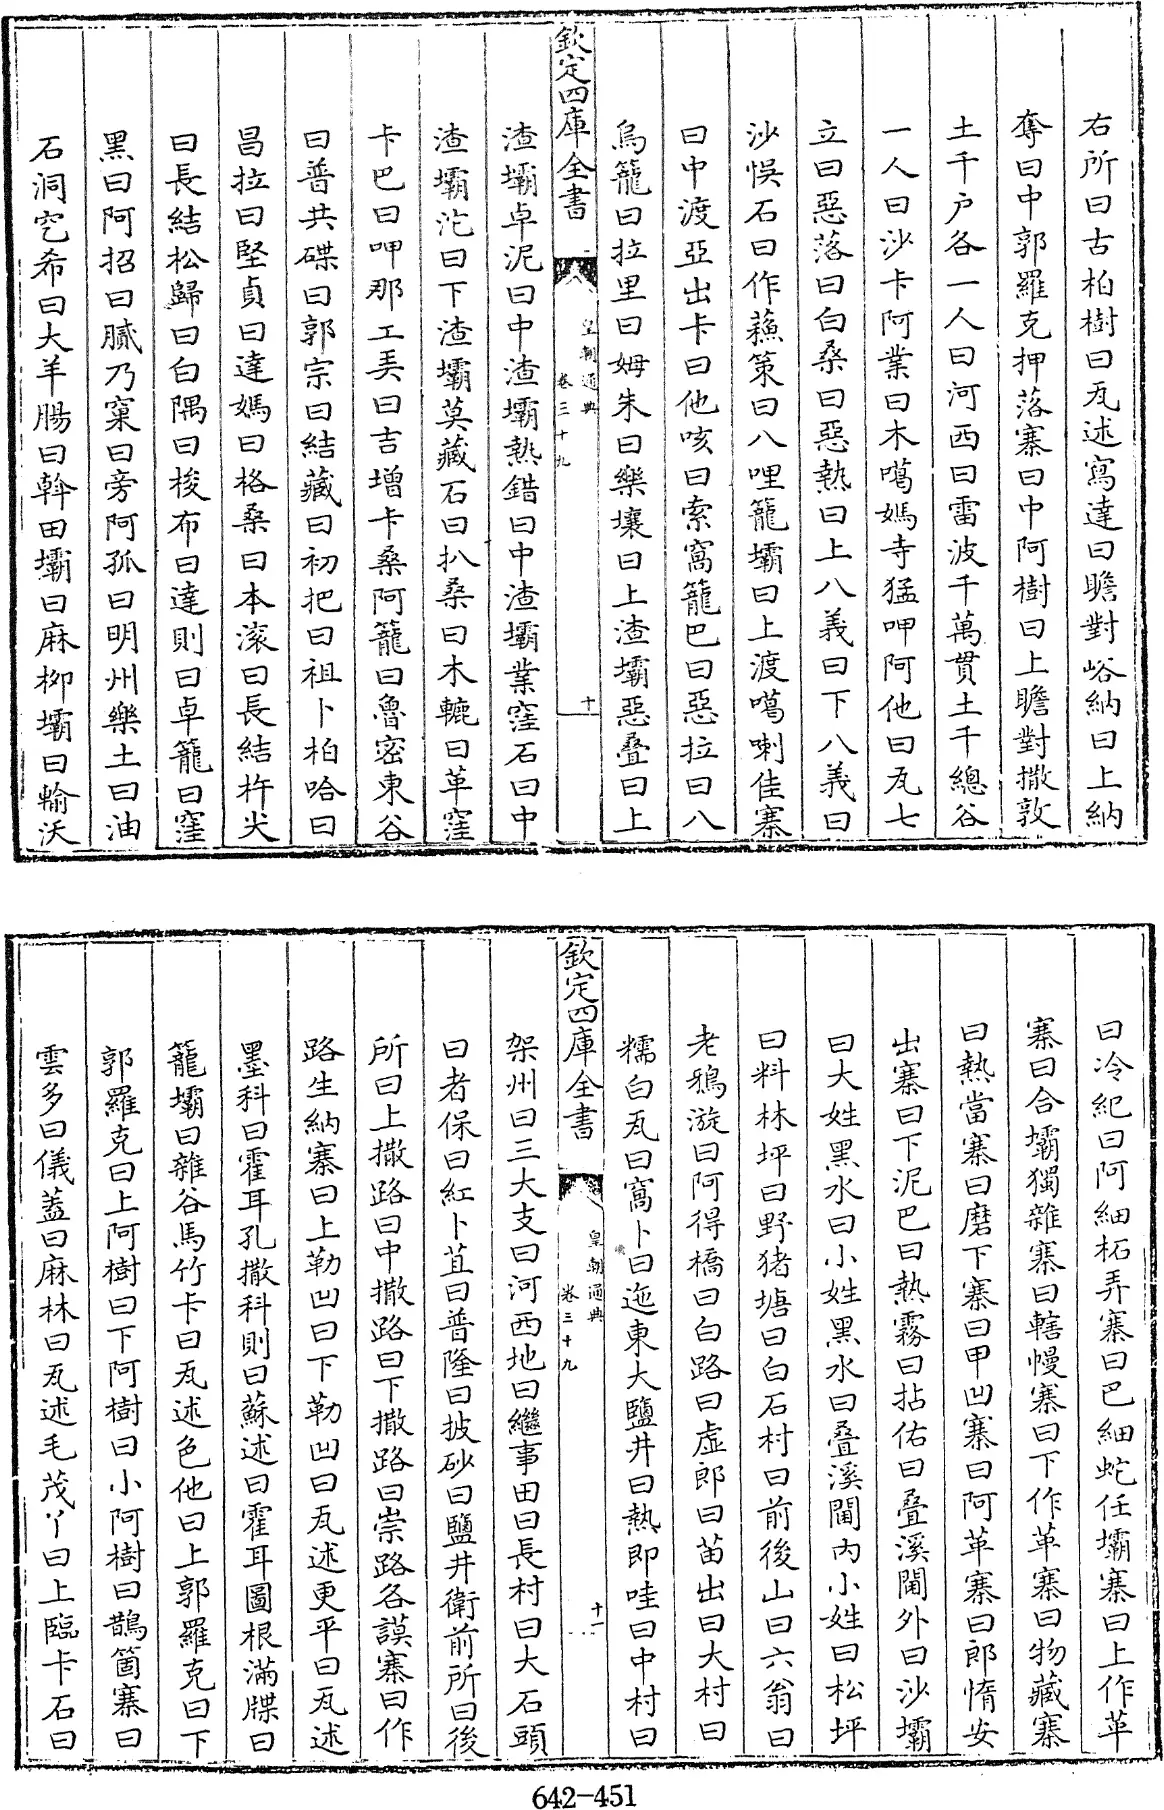 右所曰古柏樹曰瓦述寫達曰瞻對峪納曰上納
奪曰中郭羅克押落寨曰中阿樹曰上瞻對撒敦
土千户各一人曰河西曰雷波千萬貫土千總谷
一人曰沙卡阿業曰木噶媽寺猛呷阿他曰瓦七
立曰惡落曰白桑曰惡熱曰上八義曰下八義曰
沙悞石曰作蘓策曰八哩籠壩曰上渡噶喇佳寨
曰中渡亞出卡曰他咳曰索窩籠巴曰惡拉曰八
烏籠曰拉里曰姆朱曰樂壤曰上渣壩惡疊曰上
欽定四庫全書
皇朝通典
卷三十九
十
渣壩卓泥曰中渣壩熱錯曰中渣壩業窪石曰中
渣壩沱曰下渣壩莫藏石曰扒桑曰木轆曰革窪
卡巴曰呷那工弄曰吉增卡桑阿籠曰魯密東谷
曰普共碟曰郭宗曰結藏曰初把曰祖卜柏哈曰
昌拉曰堅貞曰達媽曰格桑曰本滚曰長結杵尖
曰長結松歸曰白隅曰梭布曰達則曰卓籠曰窪
黑曰阿招曰膩乃窠曰旁阿孤曰明州樂土曰油
石洞乞希曰大羊腸曰斡田壩曰麻柳壩曰輸沃
曰冷紀曰阿細柘弄寨曰巴細蛇任壩寨曰上作革
寨曰合壩獨雜寨曰轄幔寨曰下作革寨曰物藏寨
曰熱當寨曰磨下寨曰甲凹寨曰阿革寨曰郎惰安
出寨曰下泥巴曰熱霧曰拈佑曰疊溪閫外曰沙壩
曰大姓黑水曰小姓黑水曰疊溪閫内小姓曰松坪
曰料林坪曰野猪塘曰白石村曰前後山曰六翁曰
老鴉漩曰阿得橋曰白路曰虛郎曰苗出曰大村曰
糯白瓦曰窩卜曰迤東大鹽井曰熱即哇曰中村曰
欽定四庫全書
皇朝通典
卷三十九
十一
架州曰三大支曰河西地曰繼事田曰長村曰大石頭
曰者保曰紅卜苴曰普隆曰披砂曰鹽井衛前所曰後
所曰上撒路曰中撒路曰下撒路曰崇路各謨寨曰作
路生納寨曰上勒凹曰下勒凹曰瓦述更平曰瓦述
墨科曰霍耳孔撒科則曰蘇述曰霍耳圖根滿牒曰
籠壩曰雜谷馬竹卡曰瓦述色他曰上郭羅克曰下
郭羅克曰上阿樹曰下阿樹曰小阿樹曰鵲箇寨曰
雲多曰儀蓋曰麻林曰瓦述毛茂丫曰上臨卡石曰
642-451